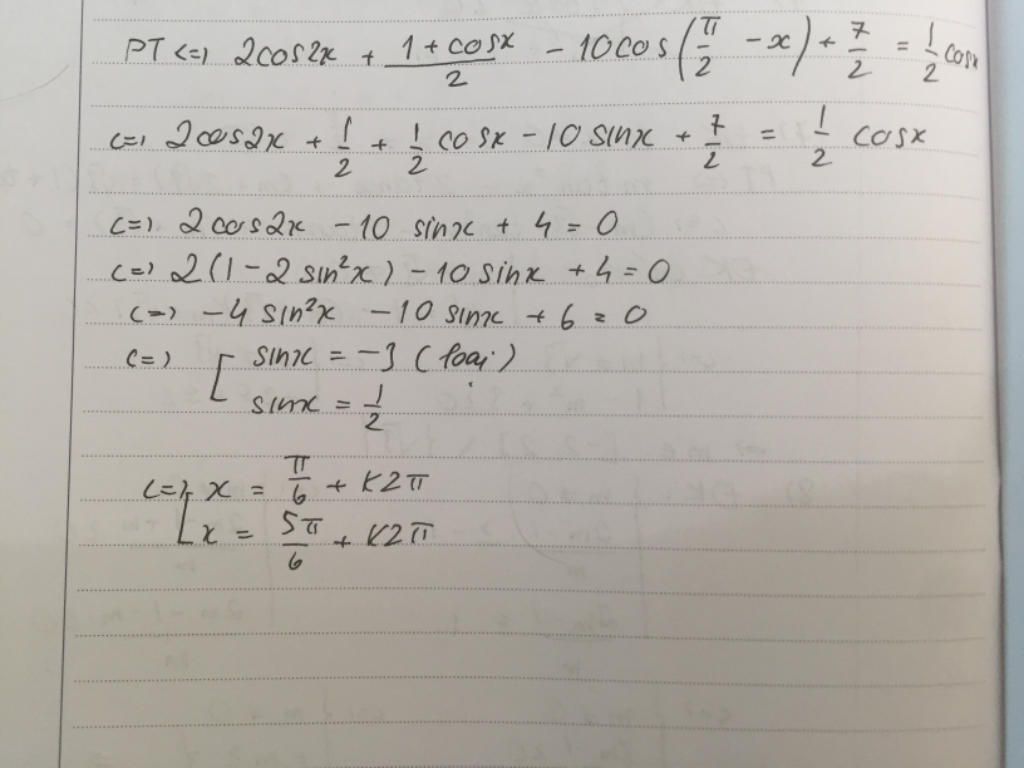 PT <=> 2cos2x + (1 + cosx)/2 - 10cos(π/2 - x) + 7/2 = 1/2 cosx
<=> 2cos2x + 1/2 + 1/2 cosx - 10 sinx + 7/2 = 1/2 cosx
<=> 2cos2x - 10 sinx + 4 = 0
<=> 2(1 - 2 sin²x) - 10 sinx + 4 = 0
<=> -4 sin²x - 10 sinx + 6 = 0
<=> [ sinx = -3 (loại)
sinx = 1/2
<=> [ x = π/6 + K2π
x = 5π/6 + K2π